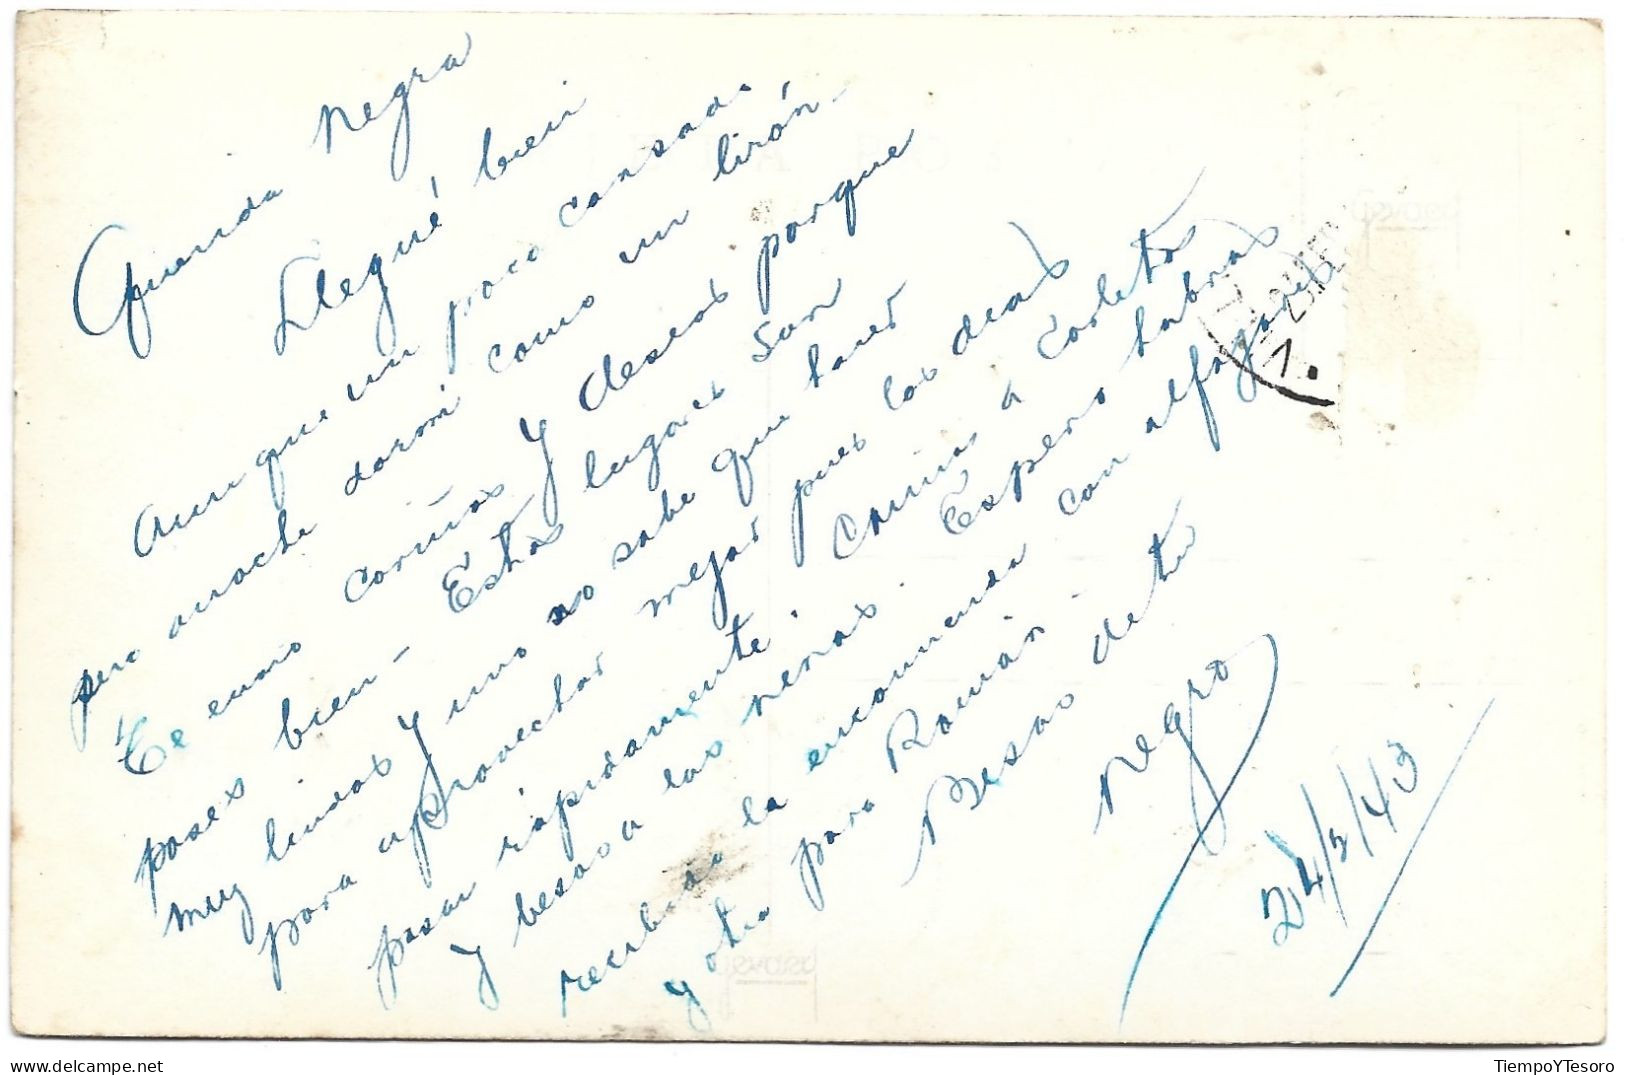 Querida Negra
Llegué bien
aunque un poco cansado
pero anoche dormí como un lirón.
Te envio cariños y deseos porque
pases bien - Estos lugares son
muy lindos y uno no sabe que hacer
para aprovechar mejor pues los dias
pasan rápidamente. Cariños a Carlitos
y besos a las nenas. Espero habras
recibido la encomienda con alfajores
y otra para Román -
Besos de tu
Negro
24/2/43
TiempoYTesoro